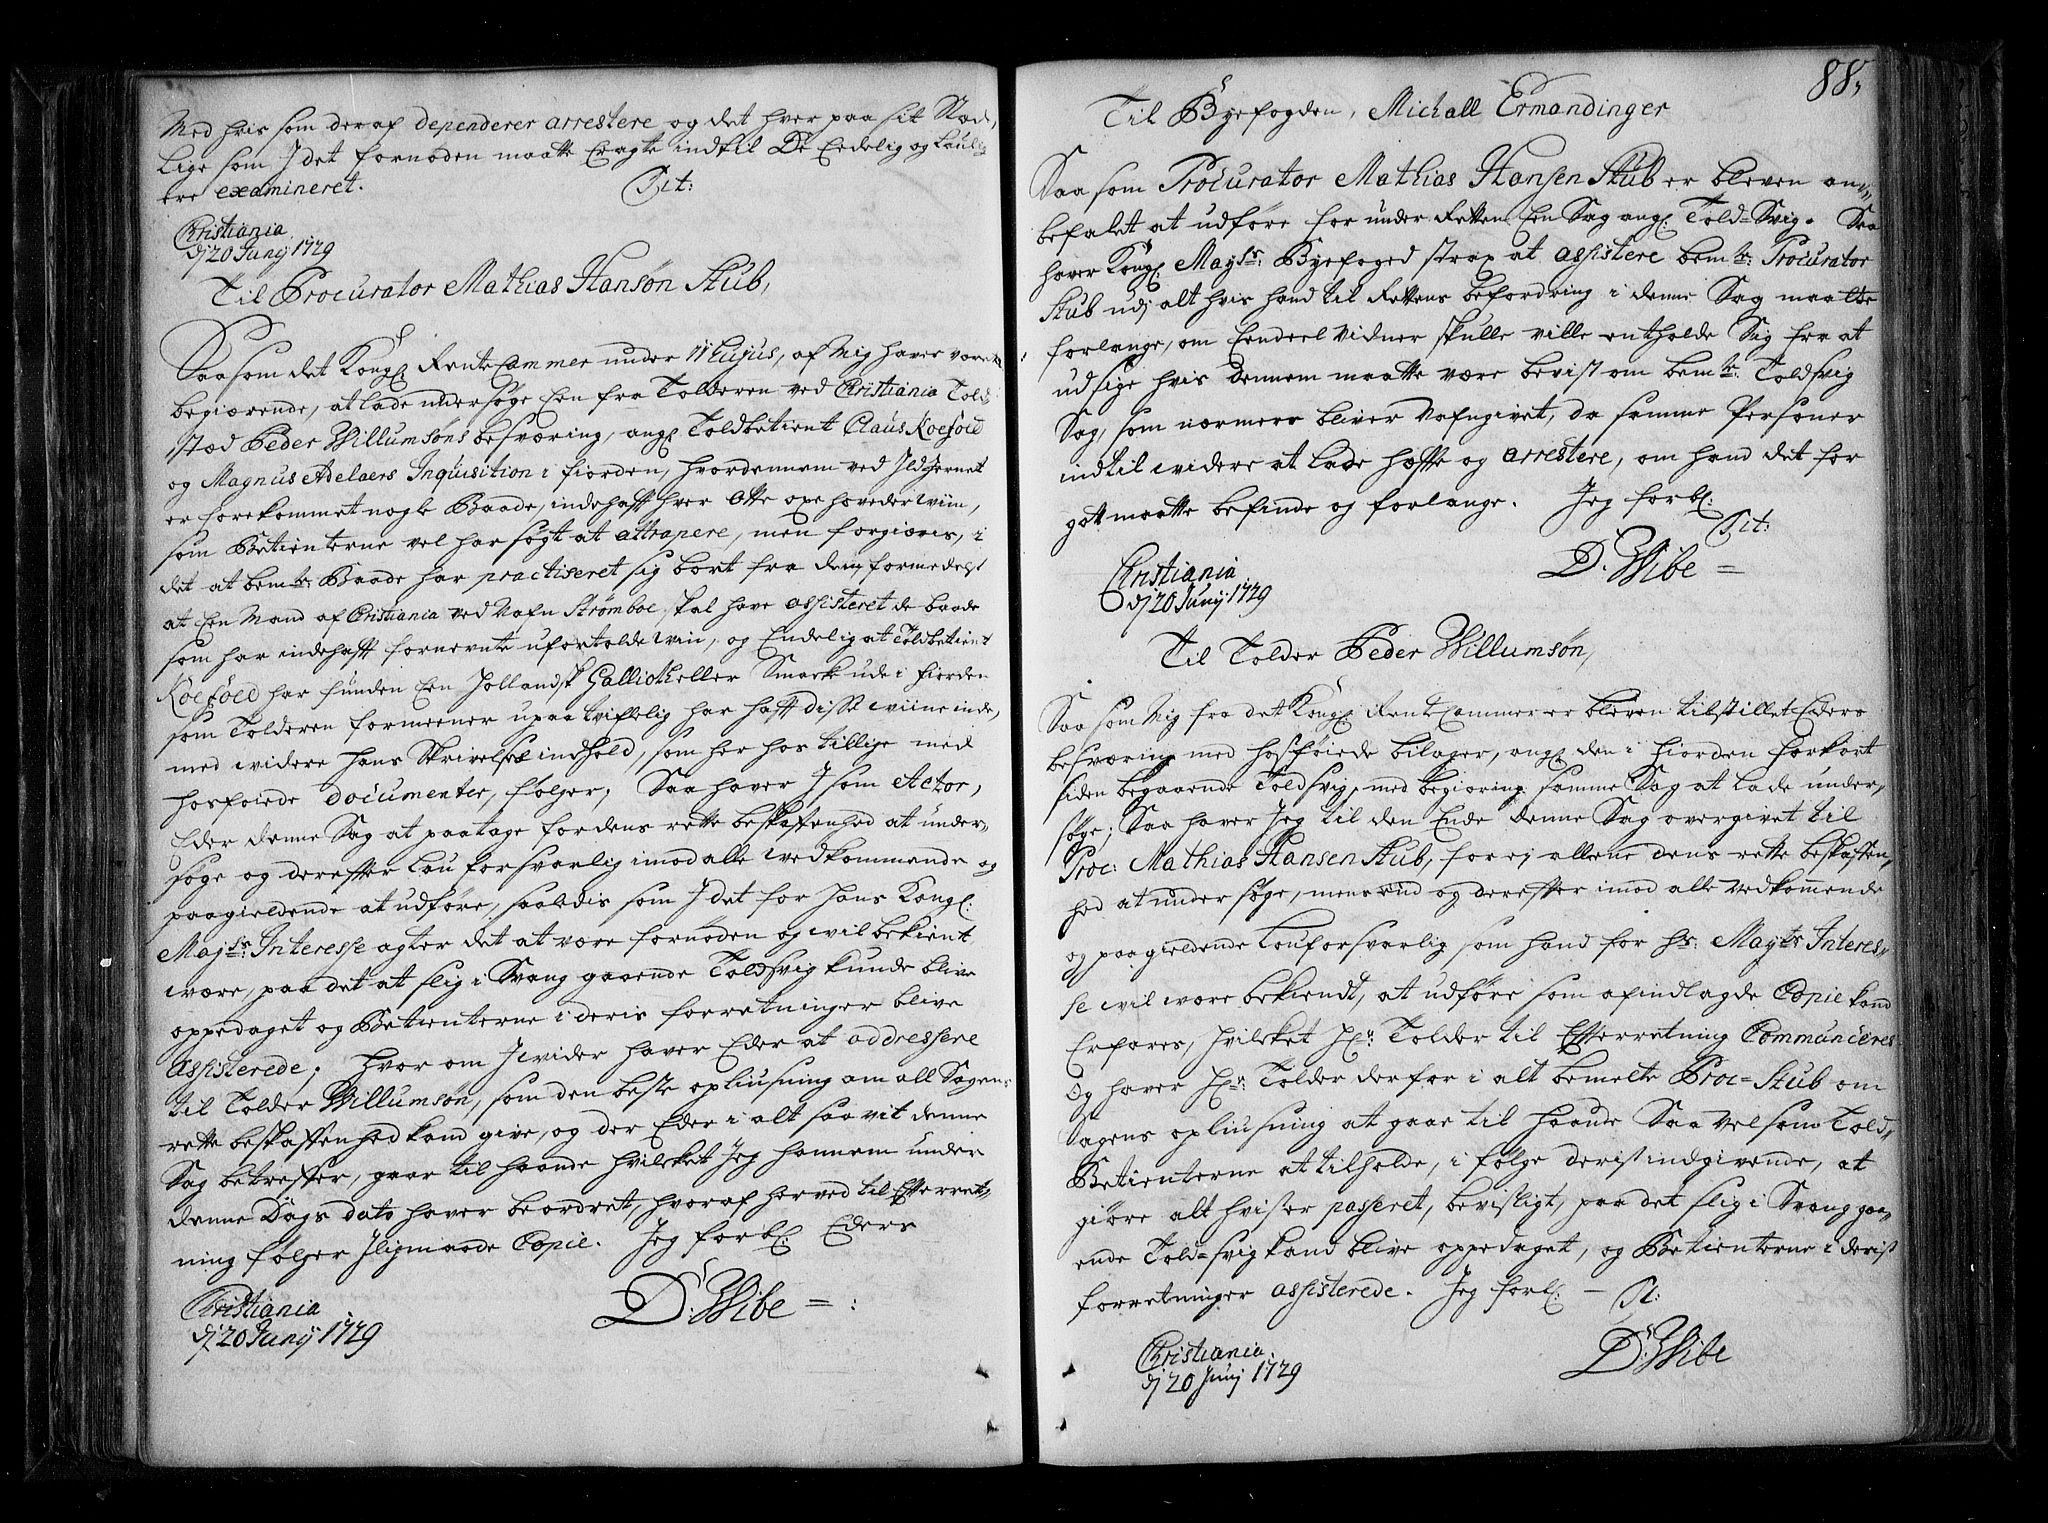 Med hvis som deraf dependerer arrestere og det hver paa sit Stæd,
Lige som I det fornøden maatte Eragte indtil De Eedelig og Laulig
ere examineret. Tit:
Christiania
dj 20 Junij 1729
Til Procurator Mathias Hansøn Stub,
Saasom det Kongl. RenteCammer under 11 hujus, af Mig haver været
begiærende, at lade undersøge Een fra Tolderen ved Christiania Told-
stæd Peder Willumsøns besværing, angl. Toldbetient Claus Koefoed
og Magnus Adelaers Inquisition i fiorden, hvordennem ved Ildjernet
er forekommet nogle Baade, indehafft hver Otte oxehoveder wiin,
som Betienterne vel har søgt at attrapere, men forgiæves, i
det at bemte. Baade har practiseret sig bort fra dem, formedelst
at Een Mand af Christiania ved Nafn Strømboe, skal have assisteret de baade
som har indehafft fornevnte ufortolde wiin, og Endelig at Toldbetient
Koefoed har funden Een Hollandsk Galliot heller Smack ude i fiorden
som Tolderen formeener upaatviflelig har hafft disse wiine inde,
med widere hans Skrivelses indhold, som her hos tillige med
hosføiede documenter, følger; Saa haver I som Actor,
Eder denne Sag at paatage fordens rette beskaffenhed at under-
søge og dereffter Lou forsvarlig imod alle wedkommende og
paagieldende at udføre, saaledis som I det for Hans Kongl:
Majsts: Interesse agter det at være fornøden og wil bekient
være, paa det at slig i Svang gaaende Toldsvig kunde blive
oppedaget og Betienterne i deris forretninger blive
assisterede; hvor om I wider haver Eder at addressere
til Tolder Willumsøn, som den beste opliusning om all Sagens
rette beskaffenhed kand give, og der Eder i alt saa vit denne
Sag betreffer, gaar til haande hvilcket Jeg hannem under
denne Dags dato haver beordret, hvoraf herved til Efterret-
ning følger Iligmaade Copie. Jeg forbl: Eders
D: Wibe
Christiania
dj 20 Junij 1729
88,
Til Byefogden, Michall Ermandinger
Saa som Procurator Mathias Hansen Stub er bleven an-
befalet at udføre for under Retten Een Sag angl. Told-Svig. Saa
haver Kongl. Mayts: Byefoged strax at assistere bemte: Procurator
Stub udj alt hvis hand til Rettens befordring i denne Sag maatte
forlange, om Eendeel Vidner skulle ville entholde Sig fra at
udsige hvis dennem maatte være bevist om bemte: Toldsvig
Sag, som nærmere bliver Nafngivet, da samme Personer
indtil widere at lade hæffte og arrestere, om hand det for
gott maatte befinde og forlange. Jeg forbl:
Tit:
D. Wibe
Christiania
dj 20 Junij 1729
Til Tolder Peder Willumsøn,
Saa som Mig fra det Kongl. RenteCammer er bleven tilstillet Eders
besværing med hosføiede bilager, angl. den i fiorden forkort
siden begaaende Toldsvig, med begiæring samme Sag at lade under-
søge; Saa haver Jeg til den Ende denne Sag overgivet til
Proc: Mathias Hansen Stub, for ej allene dens rette beskaffen-
hed at undersøge, mens end og dereffter imod alle Vedkommende
og paagieldende Louforsvarlig som hand for hs: Mayts Interes-
se wil være bekiendt, at udføre som afindlagde Copie kand
Erfares, hvilcket Hr: Tolder til Efterretning Communiceres
Og haver Hr: Tolder derfor i alt bemelte Proc= Stub om
Sagens opliusning at gaae til haande Saa vel som Told-
Betienterne at tilholde, i følge derist indgivende, at
giøre alt hvis er passeret, bevisligt, paa det slig i Svang gaa-
ende Told-svig kand blive oppedaget, og Betienterne i derist
forretninger assisterede. Jeg forbl: - Tit:
D: Wibe
Christiania
dj 20 Junij 1729